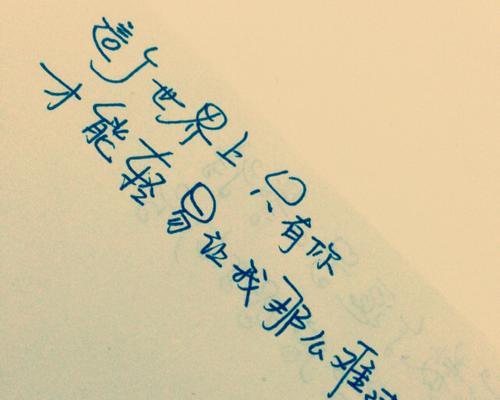 這个世界上只有你
才能轻易让我那么难